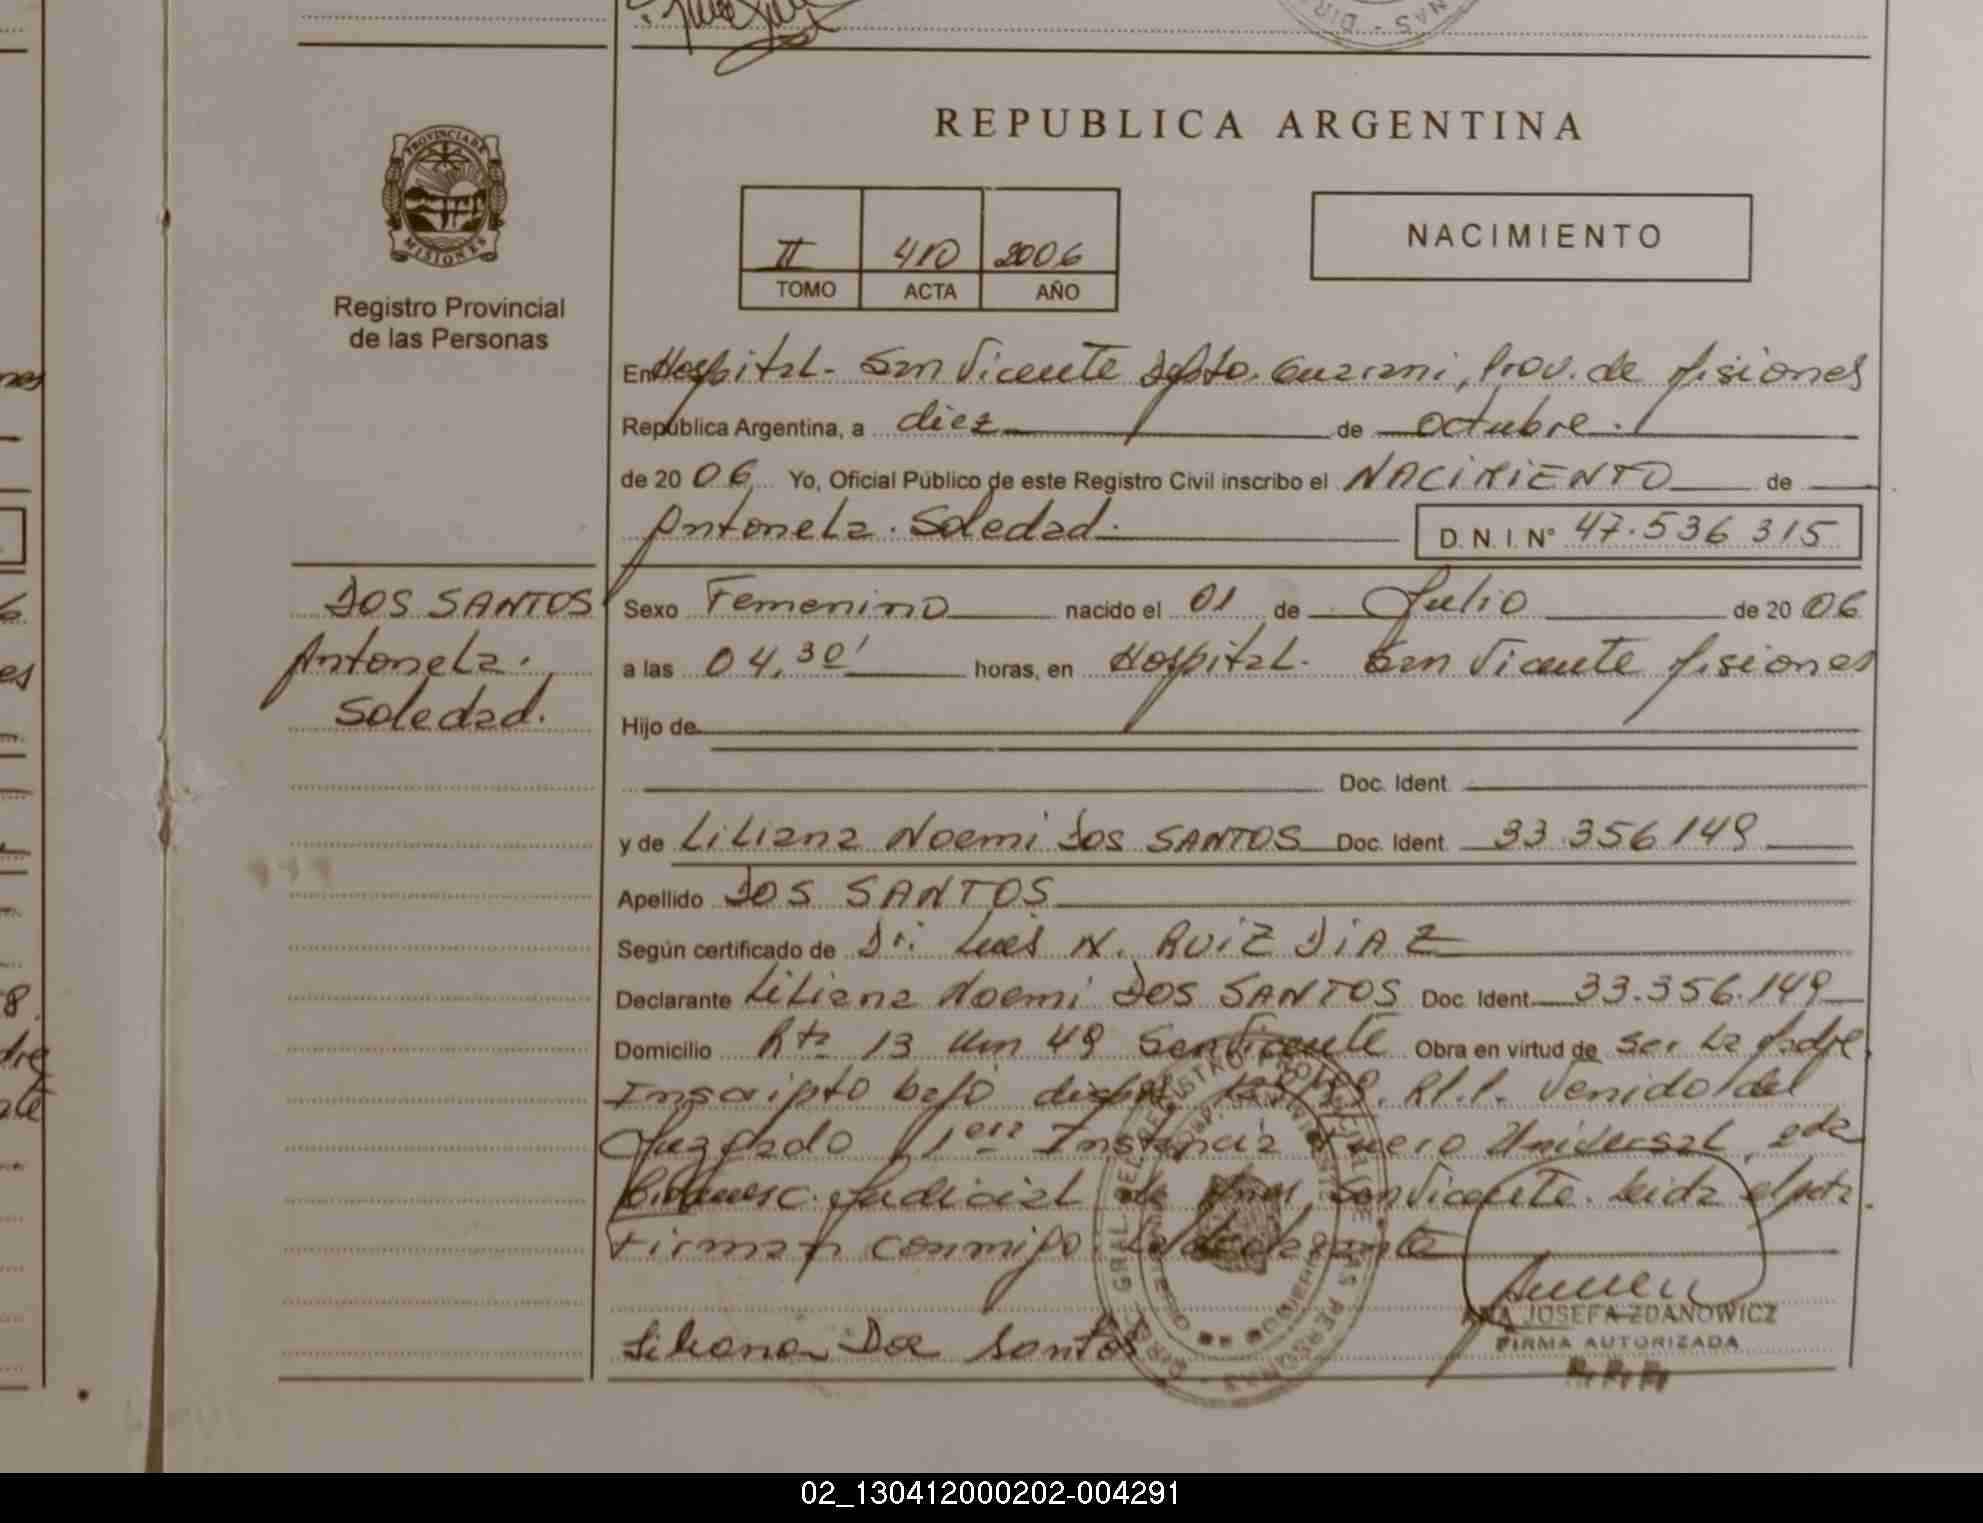 REPUBLICA ARGENTINA
PROVINCIA DE MISIONES
Registro Provincial
de las Personas
II 410 2006
TOMO ACTA AÑO
NACIMIENTO
En Hospital - San Vicente Dpto. Guarani, Prov. de Misiones
República Argentina, a diez de octubre.
de 20 06 Yo, Oficial Público de este Registro Civil inscribo el NACIMIENTO de
Antonela. Soledad.
D. N. I. N° 47.536 315
DOS SANTOS
Antonela.
Soledad.
Sexo Femenino nacido el 01 de Julio de 20 06
a las 04,30' horas, en Hospital. San Vicente Misiones
Hijo de
Doc. Ident.
y de Liliana Noemi DOS SANTOS Doc. Ident. 33.356 149
Apellido DOS SANTOS
Según certificado de Dr. Luis N. RUIZ DIAZ
Declarante Liliana Noemi DOS SANTOS Doc. Ident. 33.356.149
Domicilio Rta 13 Km 49 San Vicente Obra en virtud de ser la Madre
Inscripto bajo R.P.P. Venido del
Juzgado 1era Instancia Fuero Universal, 2da
Judicial de San Vicente. Leida el acta
Firman conmigo.
Liliana Dos Santos
ANA JOSEFA ZDANOWICZ
FIRMA AUTORIZADA
02_130412000202-004291